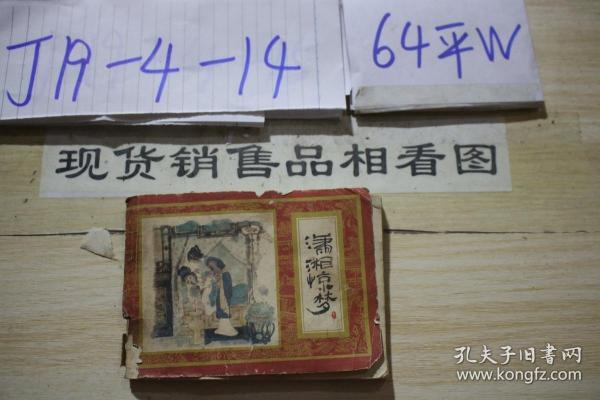 J19-4-14
64平W
现货销售品相看图
潇湘惊梦
孔夫子旧书网
www.kongfz.com